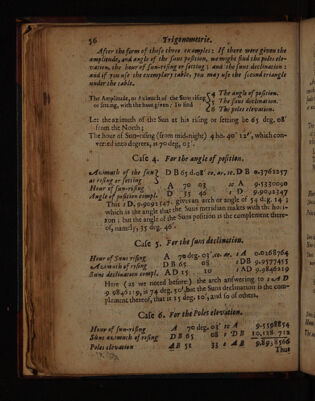 56 Trigonometrie.
After the form of those three examples: If there were given the
amplitude, and angle of the suns position, we might find the poles ele-
vation, the hour of sun-rising or setting; and the suns declination:
and if you use the exemplary table, you may use the second triangle
under the table.
The Amplitude, or Azimuth of the Sun rising 4 The angle of position.
or setting, with the hour given: To find 5 The suns declination.
6 The poles elevation.
Let the azimuth of the Sun at his rising or setting be 65 deg. 08'
from the North;
The hour of Sun-rising (from midnight) 4 ho. 40' 12", which con-
verted into degrees, is 70 deg, 03'.
Case 4. For the angle of position.
Azimuth of the sun DB 65 d. 08' co. ar. DB 0.
at rising or setting
Hour of sun-rising A 70 03
Angle of position compl. D 35 46 9.9092347
This 1 D, 9.9092347. gives an arch or angle of 54 deg. 14;
which is the angle that the Suns meridian makes with the hori-
zon: but the angle of the Suns position is the complement there-
of, namely, 35 deg. 46'.
Case 5. For the suns declination.
Hour of Suns rising A 70 deg. 03' co. ar. A 0.0268764
Azimuth of rising DB 65 08 DB 9.9577455
Suns declination compl. AD 15 10 AD 9.9846219
Here (as we noted before) the arch answering to AD
9.9846219, is 74 deg. 50', but the Suns declination is the com-
plement thereof, that is 15 deg. 10', and so of others.
Case 6. For the Poles elevation.
Hour of sun-rising A 70 deg. 03' A 9.5598854
Suns azimuth of rising DB 65 08 DB
Poles elevation AB 51 33 AB
Thus